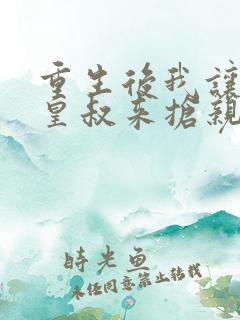 重生後我讓
皇叔來搶親
時光魚
未經同意禁止轉載